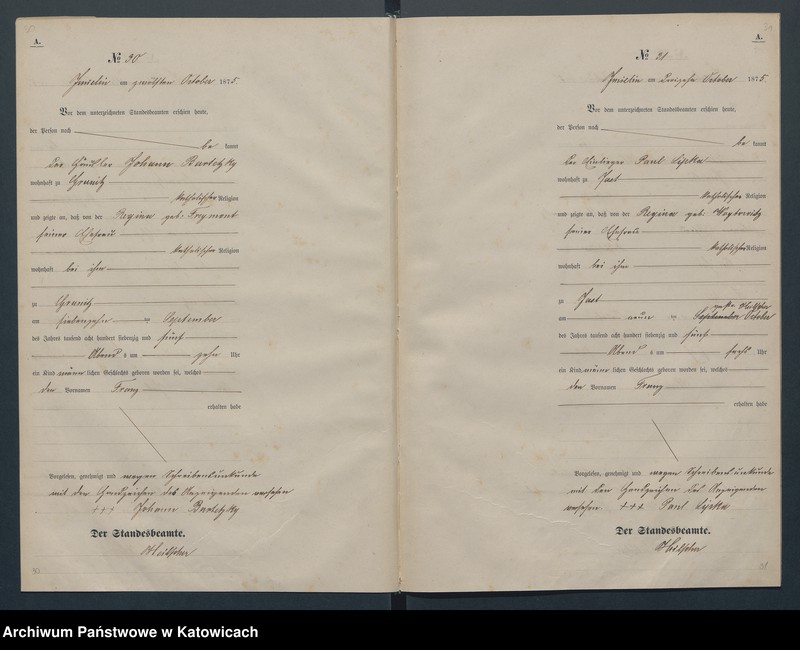 A.
№ 30
Imielin am zwölften October 1875.
Vor dem unterzeichneten Standesbeamten erschien heute,
der Person nach
be kannt
der Händler Johann Bartetzky
wohnhaft zu Chrunitz
katholischer Religion
und zeigte an, daß von der Regina geb. Freymont
seiner Ehefrau
katholischer Religion
wohnhaft bei ihm
zu
am siebenzehn ten September
des Jahres tausend acht hundert siebenzig und fünf
Abend s um zehn Uhr
ein Kind männ lichen Geschlechts geboren worden sei, welches
den Vornamen Franz
erhalten habe
Vorgelesen, genehmigt und wegen Schreibensunkunde
mit den Handzeichen des Anzeigenden versehen
+++ Johann Bartetzky
Der Standesbeamte.
30
A.
№ 31
Imielin am October 1875.
Vor dem unterzeichneten Standesbeamten erschien heute,
der Person nach
be kannt
der Einlieger Paul Lipka
wohnhaft zu Jast
katholischer Religion
und zeigte an, daß von der Regina geb. Woytowitz
seiner Ehefrau
katholischer Religion
wohnhaft bei ihm
zu Jast
am neun ten September October
des Jahres tausend acht hundert siebenzig und fünf
Abend s um sechs Uhr
ein Kind männ lichen Geschlechts geboren worden sei, welches
den Vornamen Franz
erhalten habe
Vorgelesen, genehmigt und wegen Schreibensunkunde
mit den Handzeichen des Anzeigenden
versehen +++ Paul Lipka
Der Standesbeamte.
31
Archiwum Państwowe w Katowicach